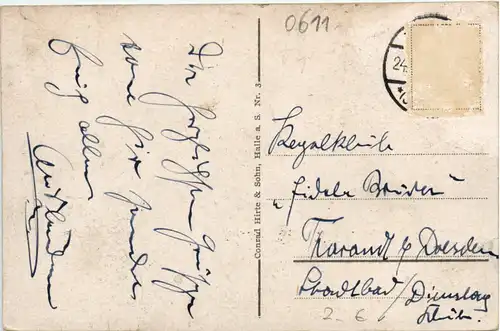 Die herzlichsten Grüße
von hier sendet
Euch allen
0611
Conrad Hirte & Sohn, Halle a. S. Nr. 3
24.
Kegelklub
„Fidele Brüder“
Tharandt b/ Dresden
Stadtbad / Dienstag
Klub.
2.- €